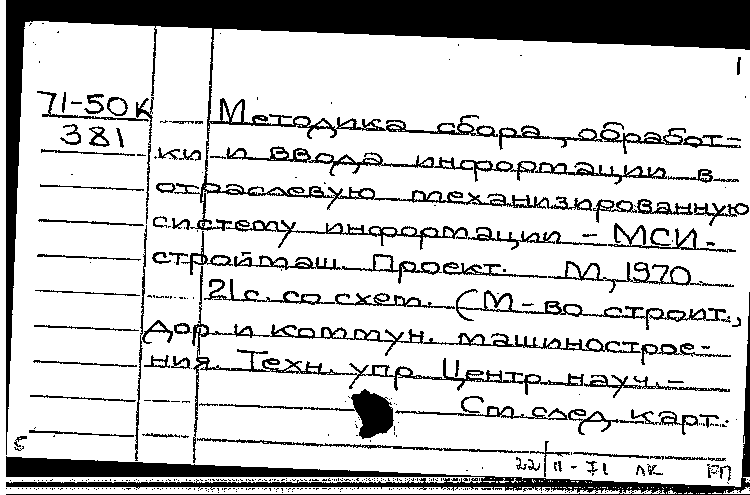 1
71-50к Методика сбора, обработ-
381
ки и ввода информации в
отраслевую механизированную
систему информации - МСИ-
строймаш. Проект. М., 1970.
21 с. со схем. (М-во строит.,
дор. и коммун. машинострое-
ния. Техн. упр. Центр. науч.-
См. след. карт.
Б
22/II-71 ЛК РП